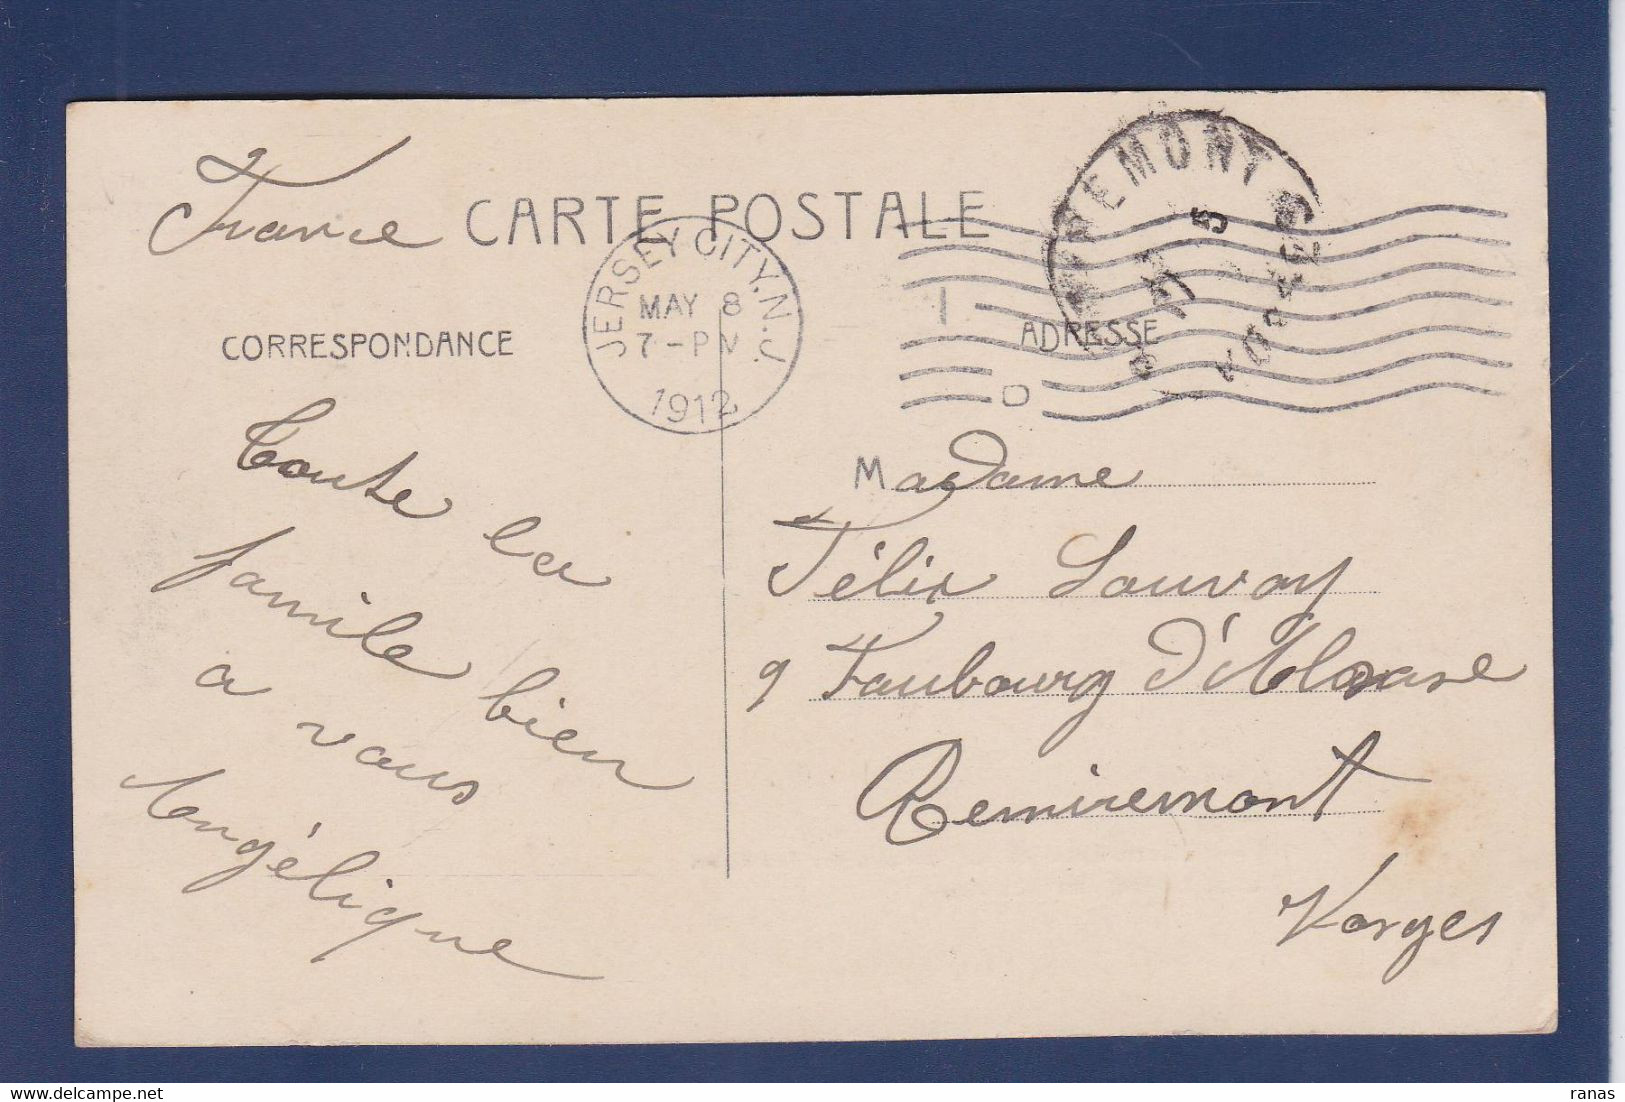 France
CARTE POSTALE
JERSEY CITY. N.J.
MAY 8
7-PM
1912
REMIREMONT
5
VOSGES
CORRESPONDANCE
ADRESSE
Toute la
famile bien
a vous
Angélique
Madame
Félix Louvay
9 Faubourg d'Alsase
Remiremont
Vosges
ranas